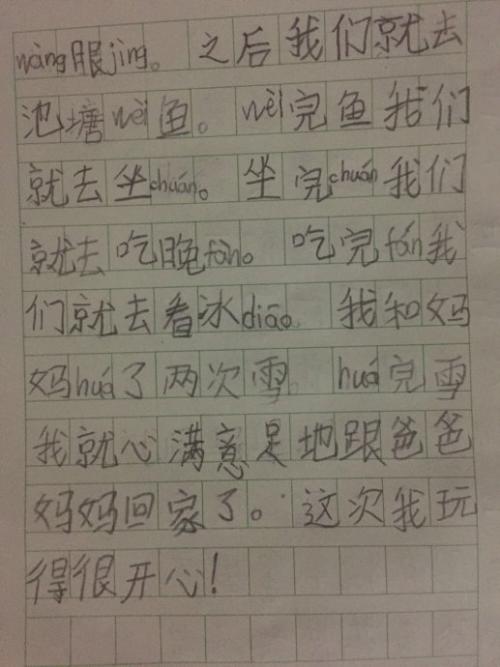 wàng眼jìng。之后我们就去
池塘wèi鱼。wèi完鱼我们
就去坐chuán。坐完chuán我们
就去吃晚fàn。吃完fán我
们就去看冰diāo。我和妈
妈huá了两次雪。huá完雪
我就心满意足地跟爸爸
妈妈回家了。这次我玩
得很开心！